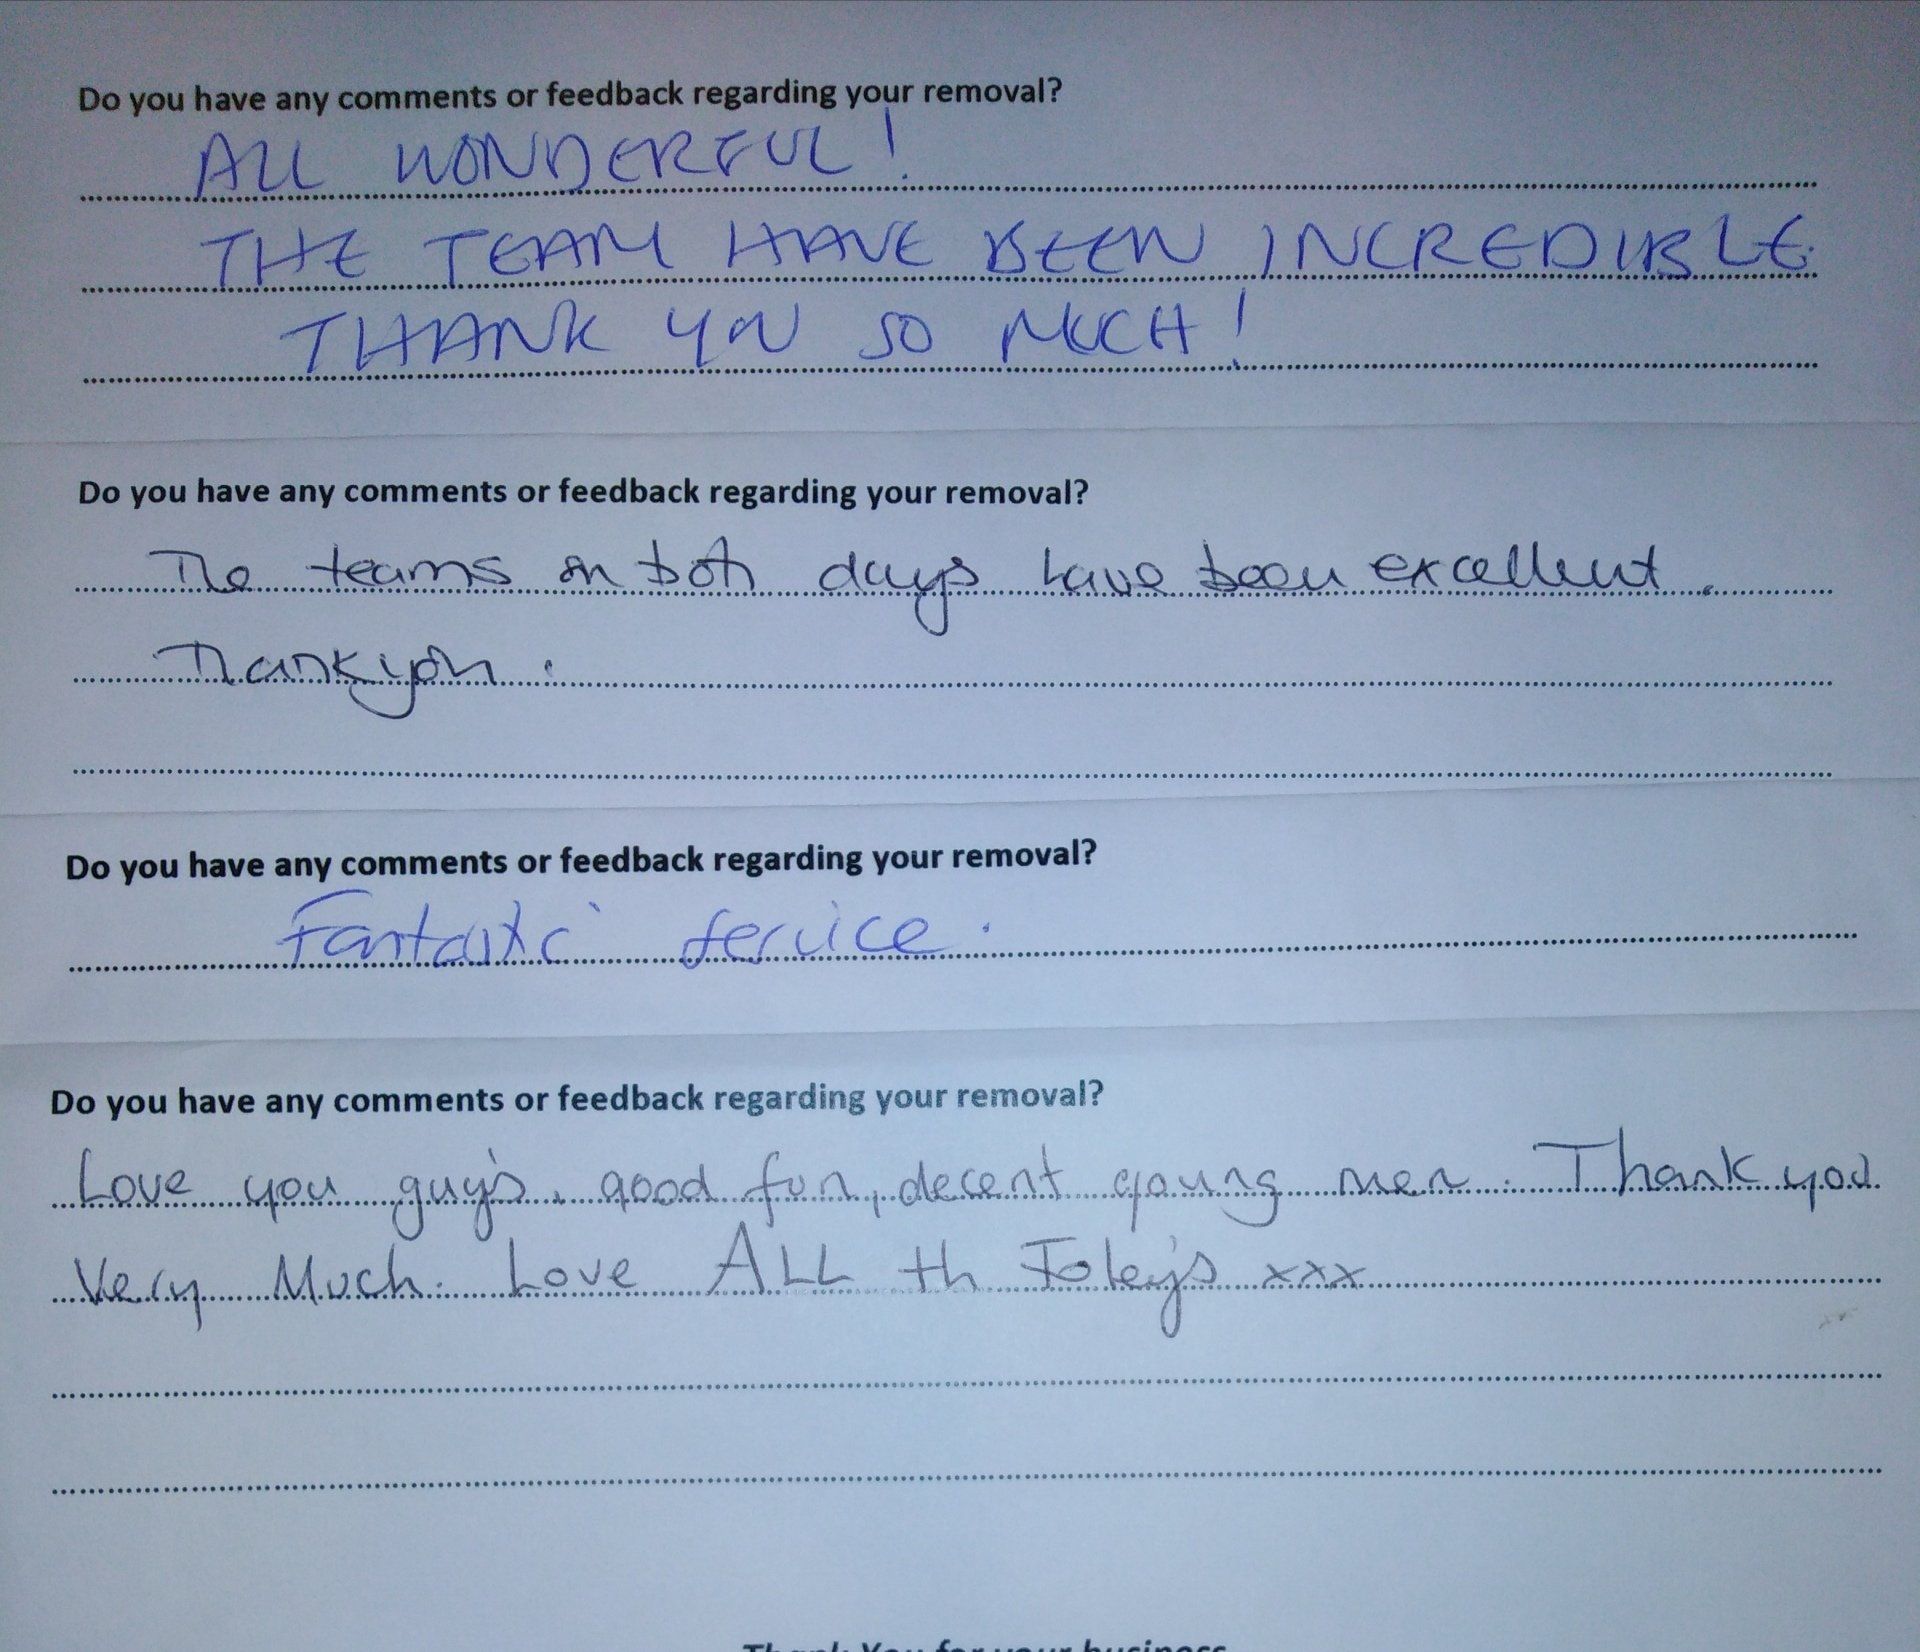 Do you have any comments or feedback regarding your removal?
ALL WONDERFUL!
THE TEAM HAVE BEEN INCREDIBLE.
THANK YOU SO MUCH!
Do you have any comments or feedback regarding your removal?
The teams on both days have been excellent.
Thankyou.
Do you have any comments or feedback regarding your removal?
Fantastic service.
Do you have any comments or feedback regarding your removal?
Love you guy's. good fun, decent young men. Thank you
Very Much. Love ALL th Foley's xxx
Thank You for your business